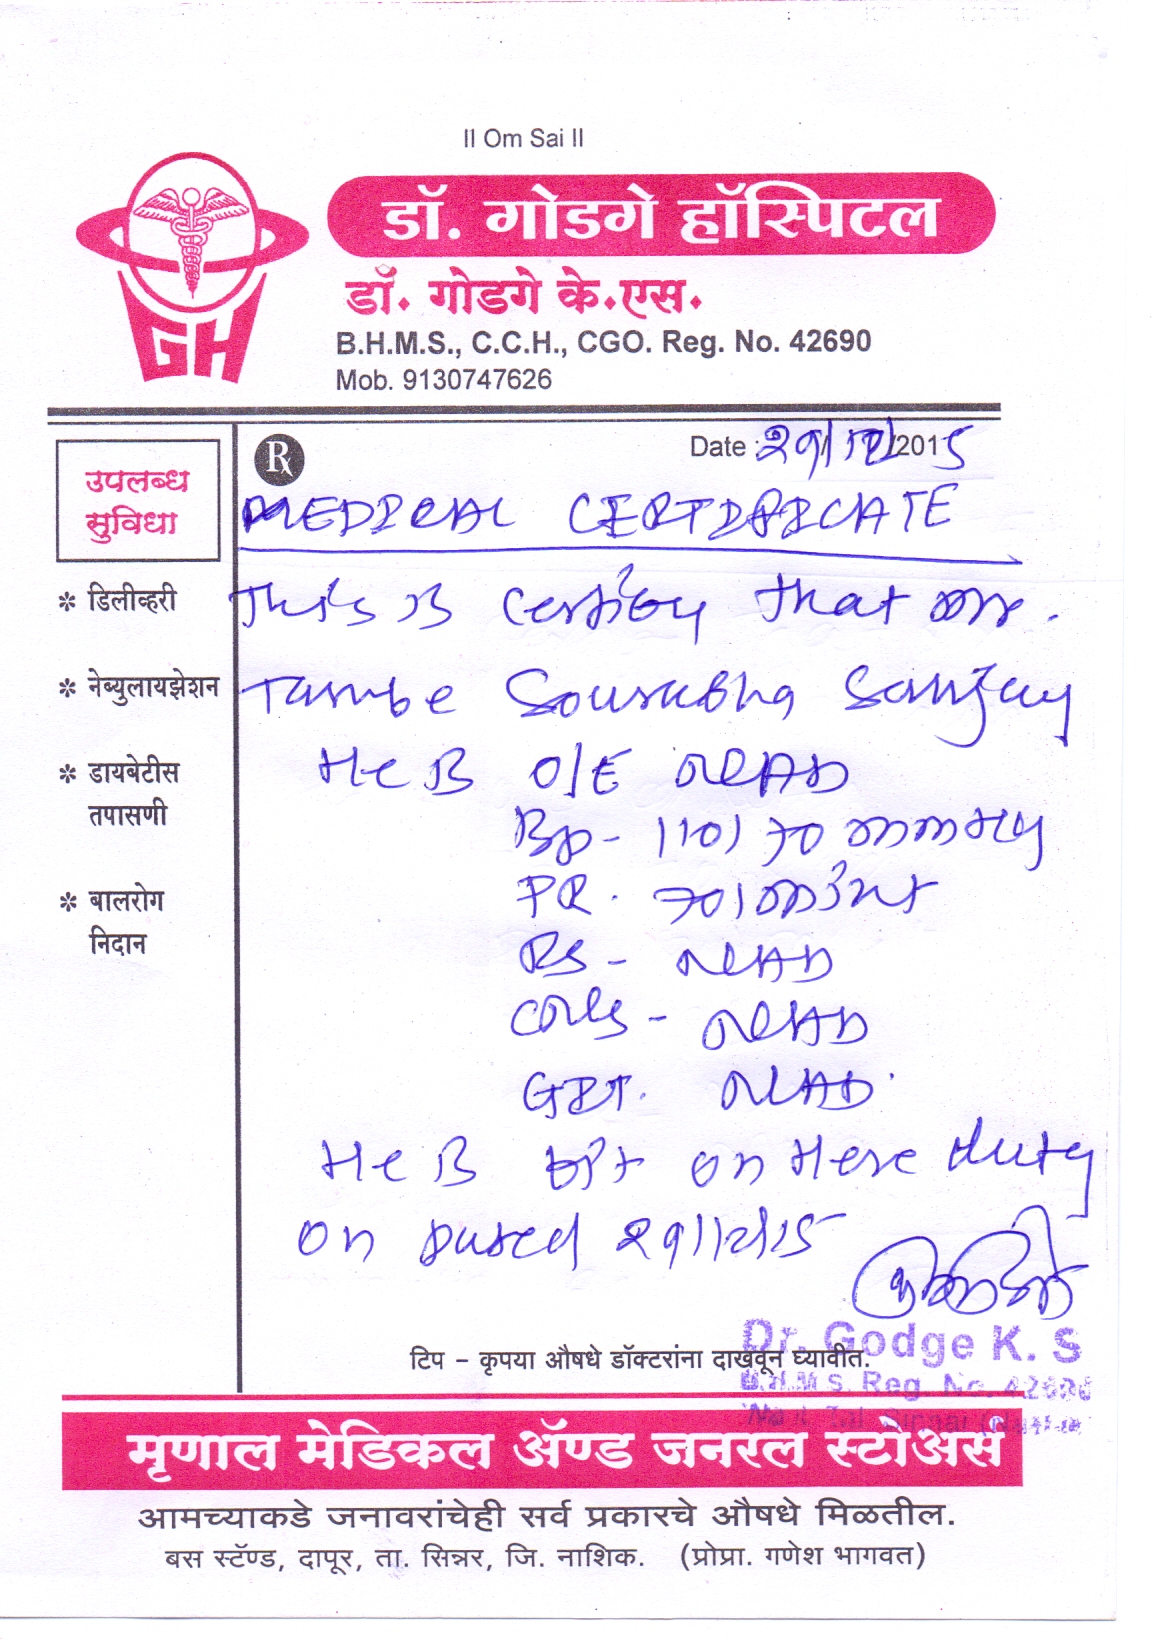 II Om Sai II
डॉ. गोडगे हॉस्पिटल
डॉ. गोडगे के.एस.
B.H.M.S., C.C.H., CGO. Reg. No. 42690
Mob. 9130747626
GH
उपलब्ध
सुविधा
* डिलीव्हरी
* नेब्युलायझेशन
* डायबेटीस
तपासणी
* बालरोग
निदान
Rx
Date : 29/12/2015
MEDICAL CERTIFICATE
This is certify that mr.
Tambe Sourabha Sanjay
He is O/E NAD
BP - 110/70 mmHg
PR. 70/minut
RS - NAD
CVS - NAD
GIT. NAD.
He is fit on Here duty
on dated 29/12/15
Dr. Godge K. S
B.H.M.S. Reg. No. 42690
टिप - कृपया औषधे डॉक्टरांना दाखवून घ्यावीत.
मृणाल मेडिकल ॲण्ड जनरल स्टोअर्स
आमच्याकडे जनावरांचेही सर्व प्रकारचे औषधे मिळतील.
बस स्टॅण्ड, दापूर, ता. सिन्नर, जि. नाशिक. (प्रोप्रा. गणेश भागवत)